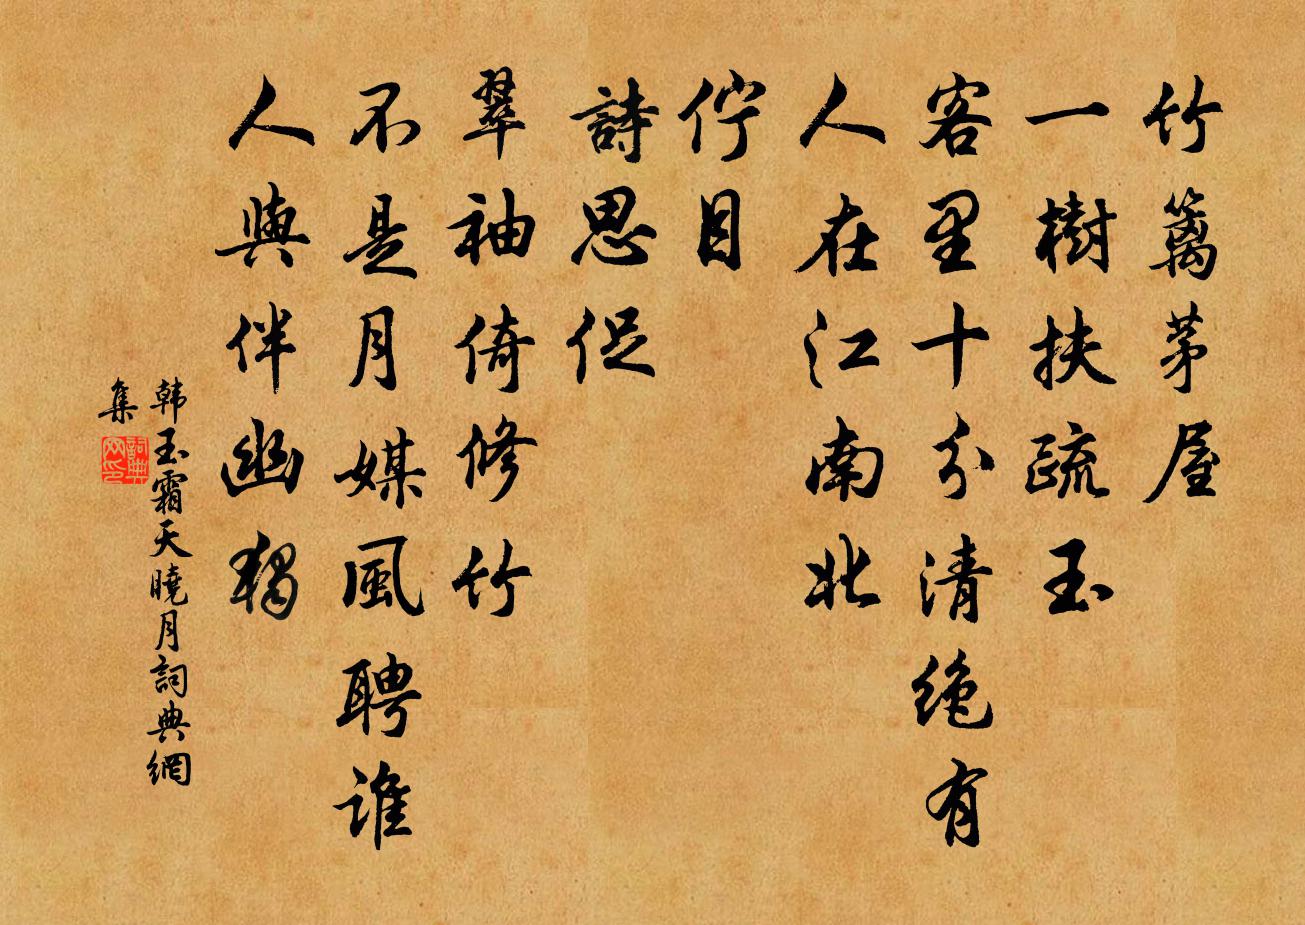 竹篱茅屋
一樹扶疏玉
客里十分清绝有
人在江南北
佇目
詩思促
翠袖倚修竹
不是月媒風聘谁
人與伴幽獨
韩玉霜天曉月詞典網
集
詞典網印